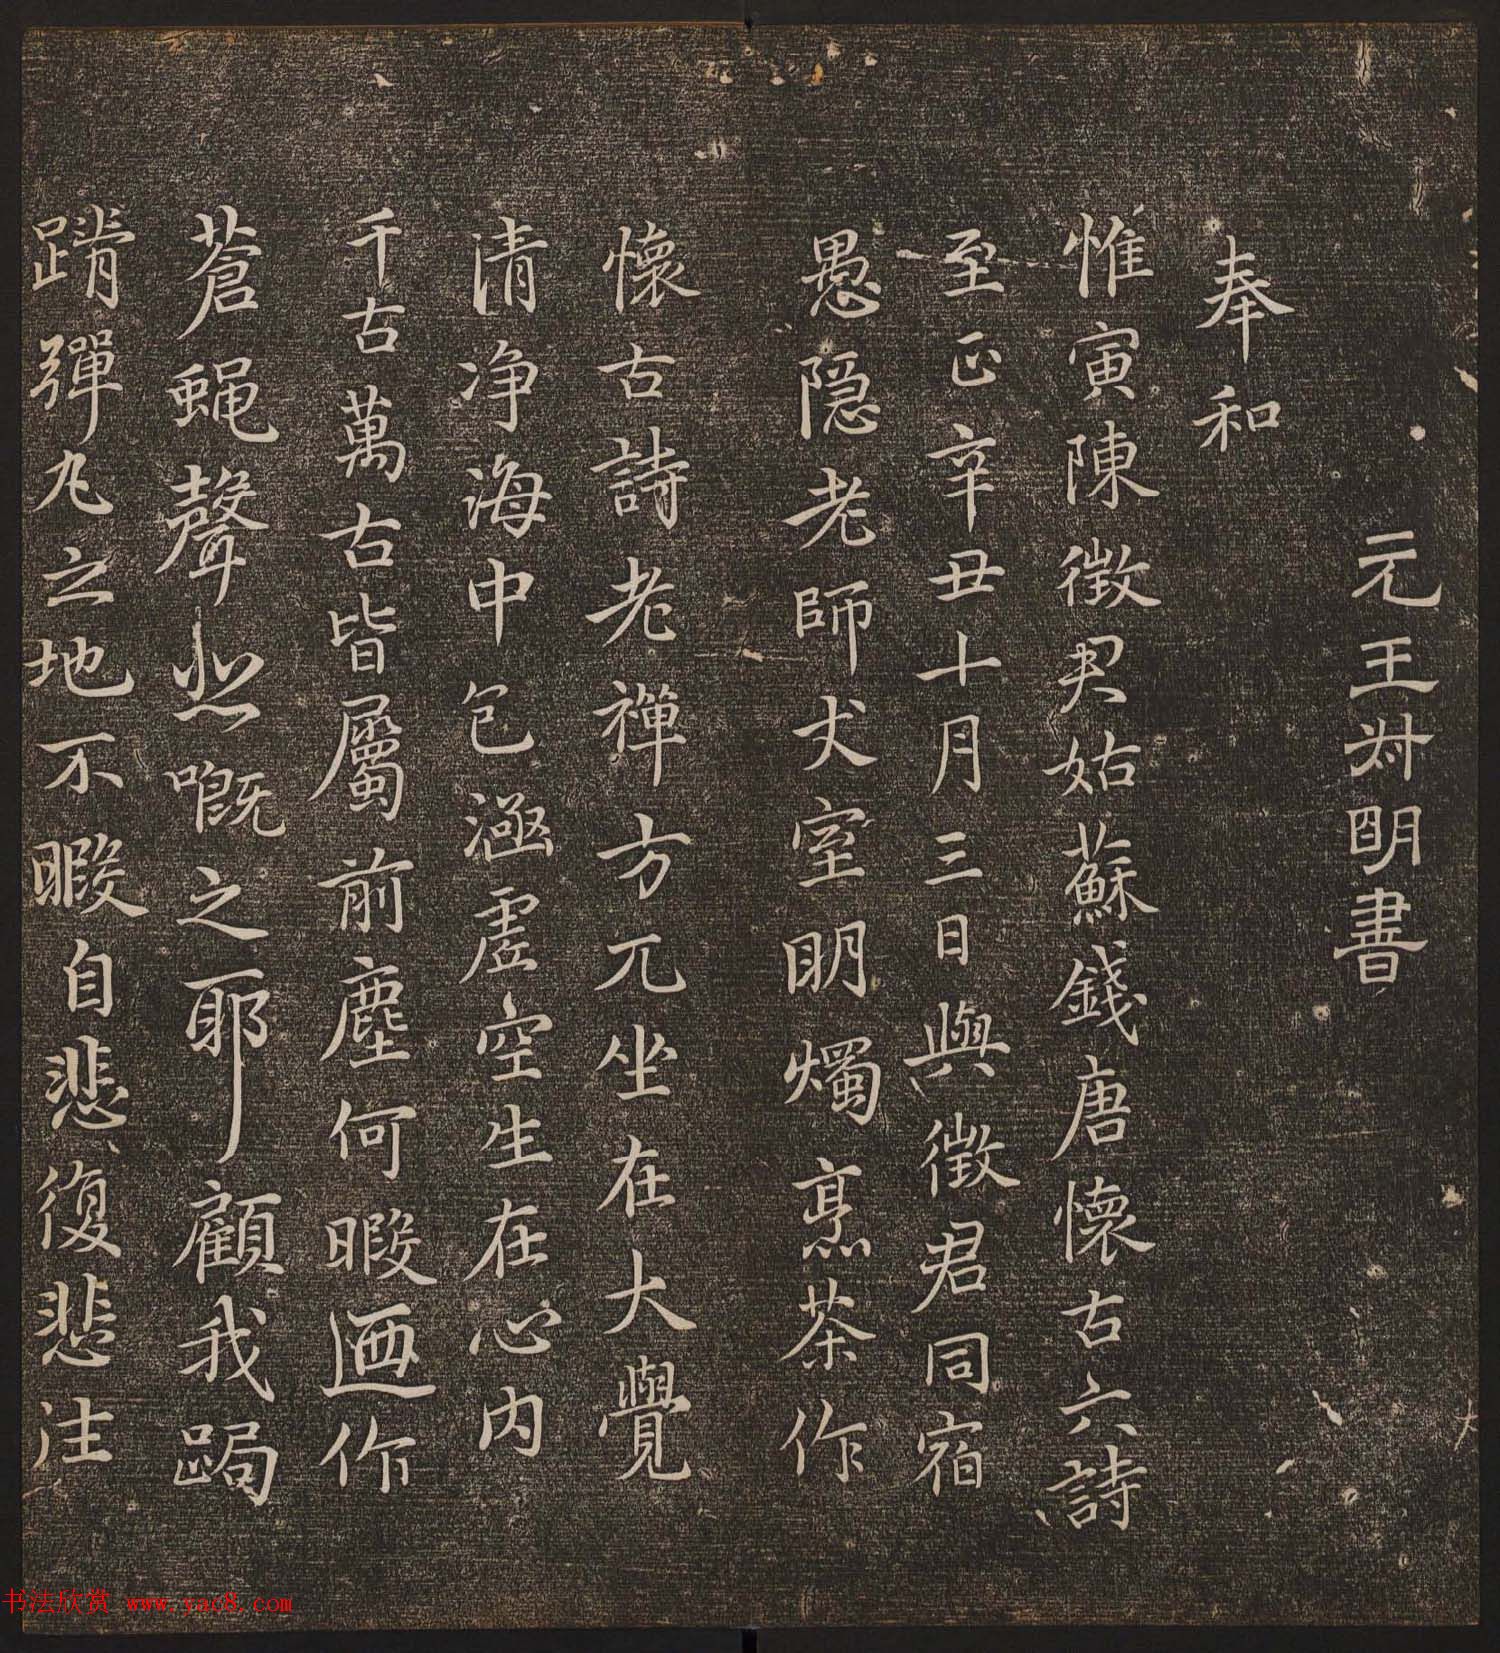 元王叔明書
奉和
惟寅陳徵君姑蘇錢唐懷古六詩
至正辛丑十月三日與徵君同宿
愚隱老師丈室明燭烹茶作
懷古詩老禪方兀坐在大覺
清净海中包涵虛空生在心内
千古萬古皆屬前塵何暇迺作
蒼蠅聲悲嘅之耶顧我跼
蹐彈丸之地不暇自悲復悲往
书法欣赏 www.yac8.com